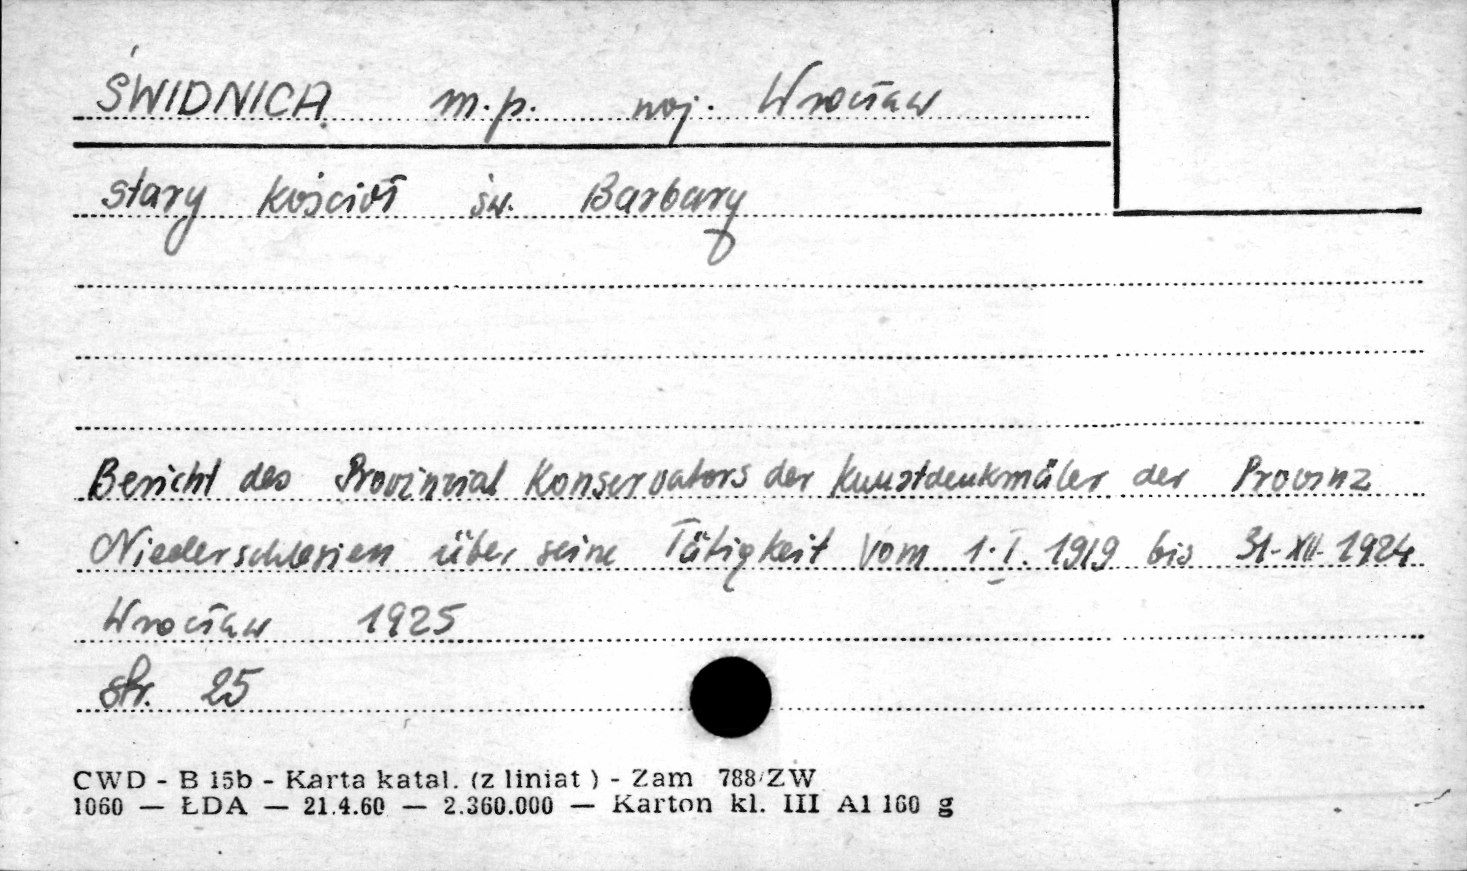 ŚWIDNICA m.p. woj. Wrocław
stary kościół św. Barbary
Bericht des Provinzial Konservators der Kunstdenkmäler der Provinz
Niederschlesien über seine Tätigkeit vom 1.I.1919 bis 31-XII-1924
Wrocław 1925
str. 25
CWD - B 15b - Karta katal. (z liniat ) - Zam 788/ZW
1060 — ŁDA — 21.4.60 — 2.360.000 — Karton kl. III A1 160 g